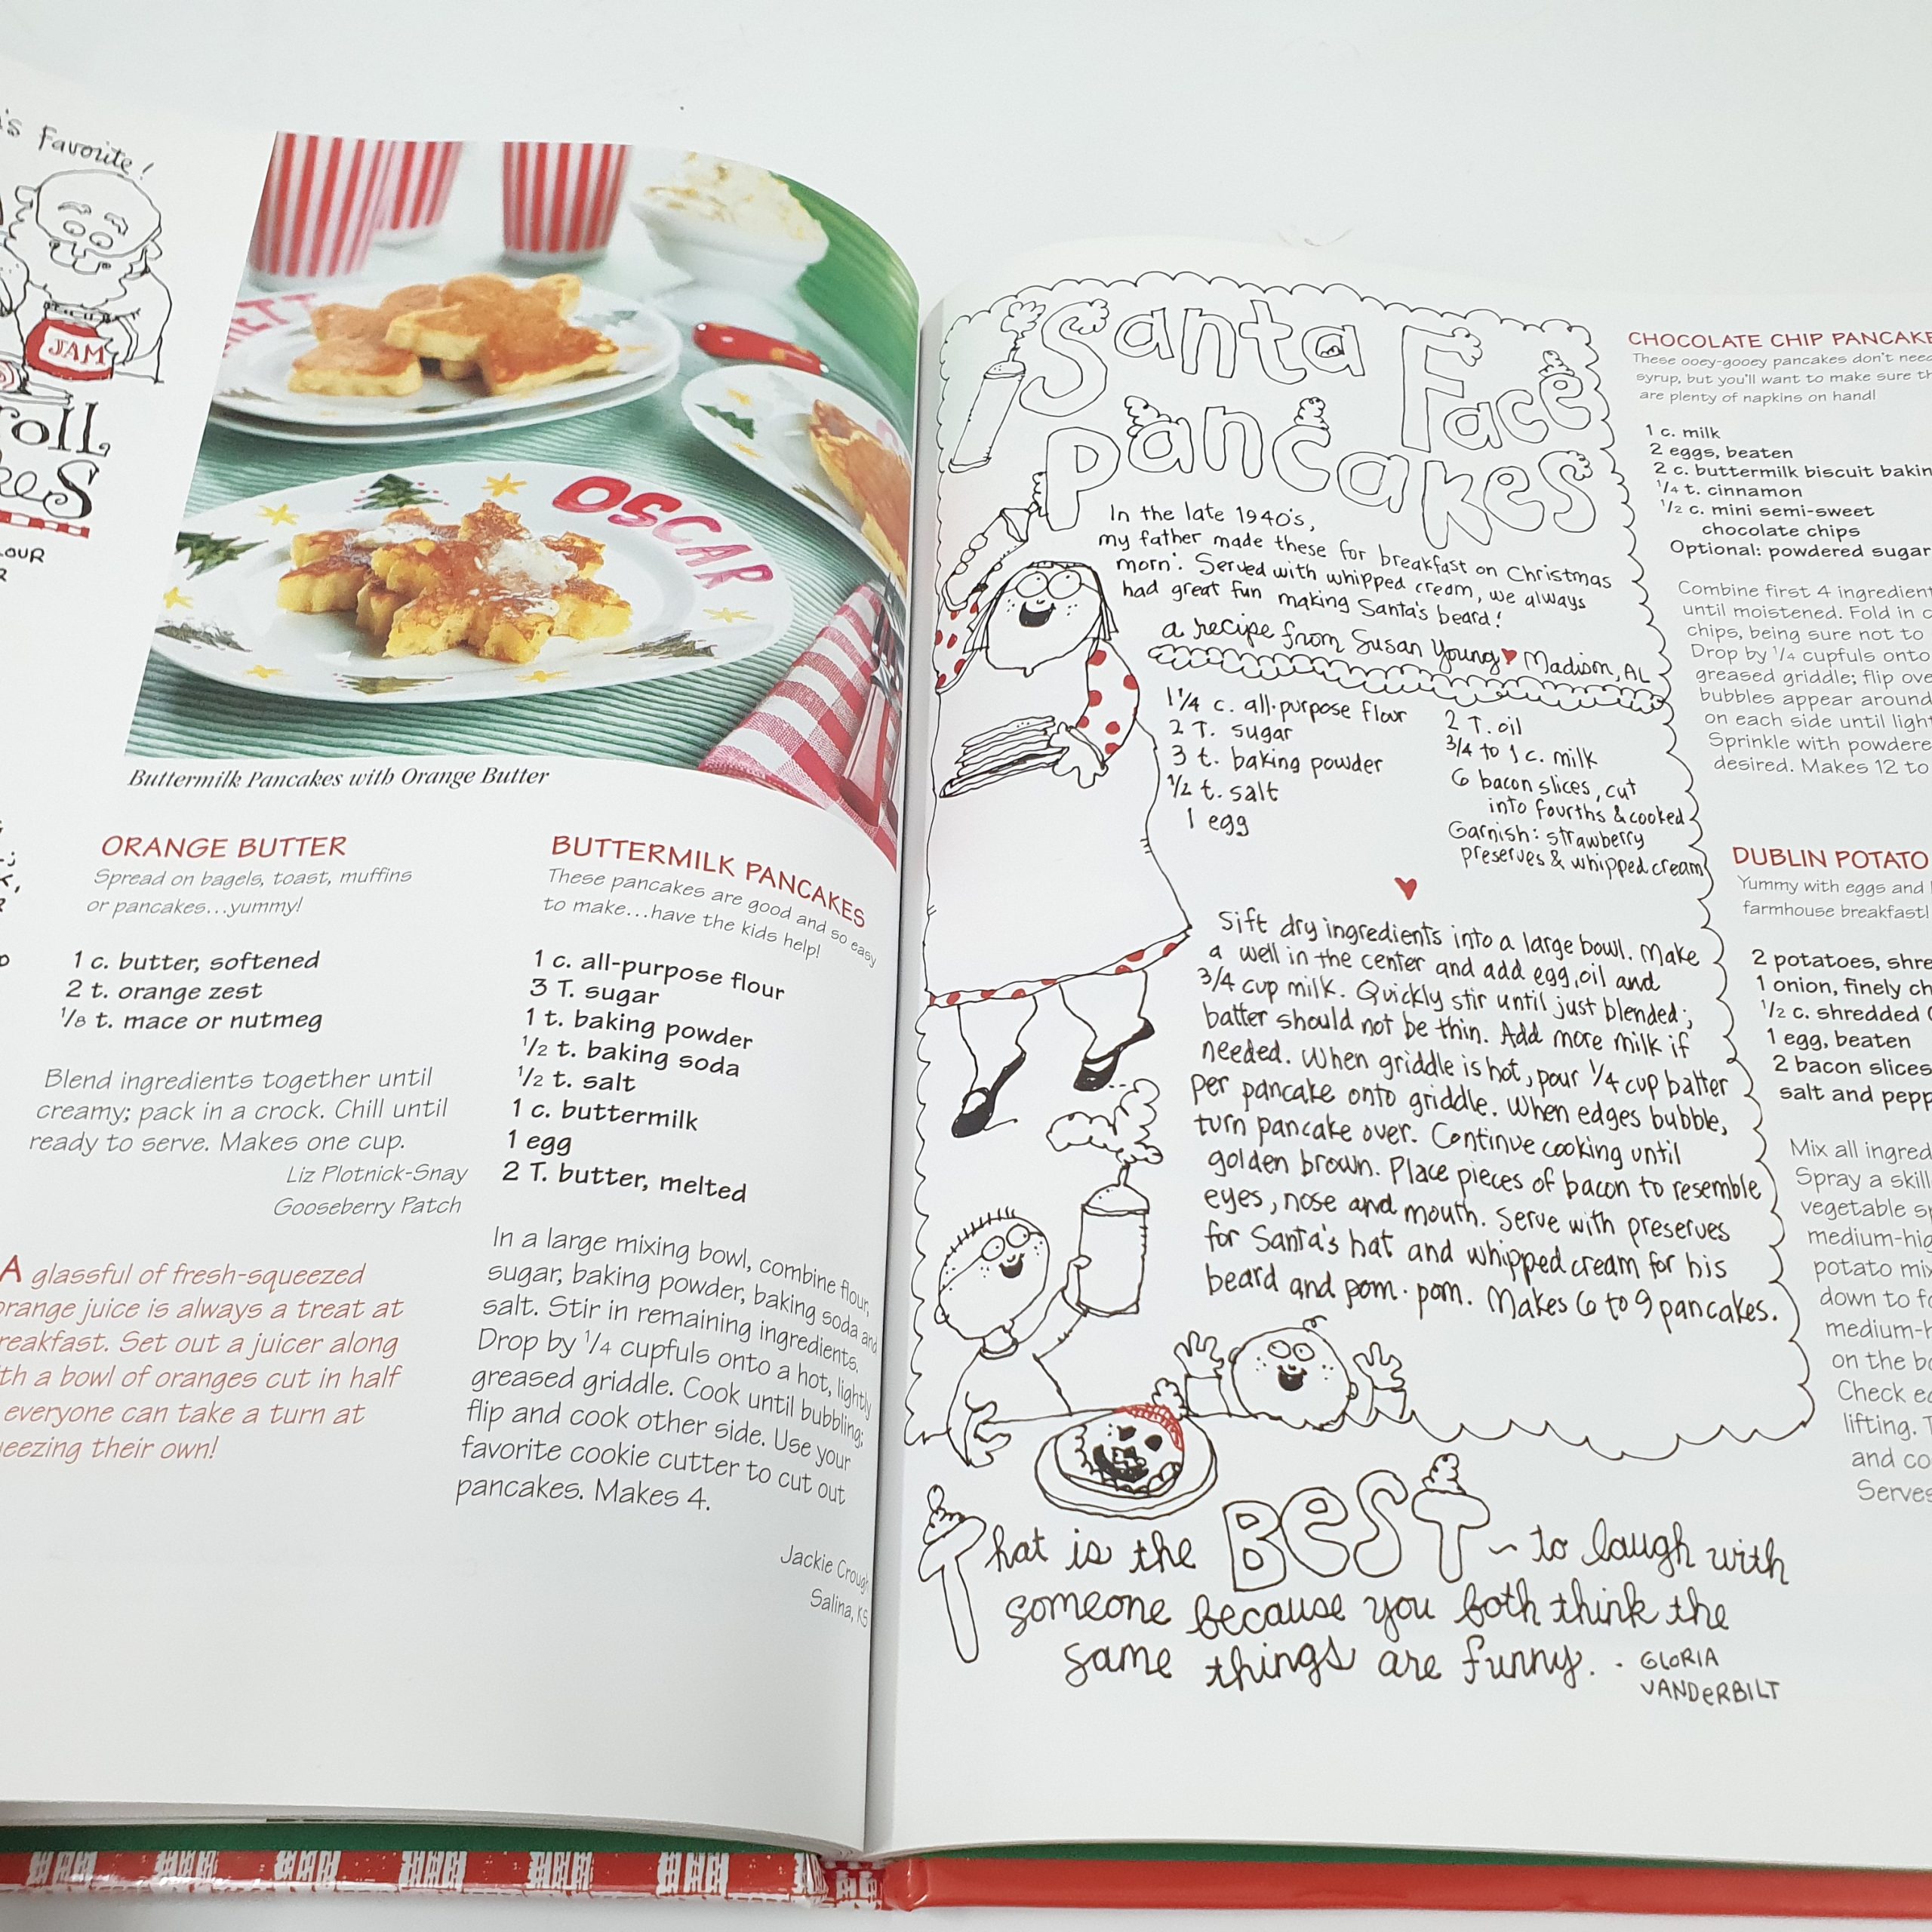 's Favorite!
JAM
roll
kes
LOUR
R
OSCAR
Buttermilk Pancakes with Orange Butter
ORANGE BUTTER
Spread on bagels, toast, muffins
or pancakes...yummy!
1 c. butter, softened
2 t. orange zest
1/8 t. mace or nutmeg
Blend ingredients together until
creamy; pack in a crock. Chill until
ready to serve. Makes one cup.
Liz Plotnick-Snay
Gooseberry Patch
A glassful of fresh-squeezed
orange juice is always a treat at
reakfast. Set out a juicer along
th a bowl of oranges cut in half
everyone can take a turn at
ueezing their own!
BUTTERMILK PANCAKES
These pancakes are good and so easy
to make...have the kids help!
1 c. all-purpose flour
3 T. sugar
1 t. baking powder
1/2 t. baking soda
1/2 t. salt
1 c. buttermilk
1 egg
2 T. butter, melted
In a large mixing bowl, combine flour,
sugar, baking powder, baking soda and
salt. Stir in remaining ingredients.
Drop by 1/4 cupfuls onto a hot, lightly
greased griddle. Cook until bubbling;
flip and cook other side. Use your
favorite cookie cutter to cut out
pancakes. Makes 4.
Jackie Crough
Salina, KS
Santa Face
Pancakes
In the late 1940's,
my father made these for breakfast on Christmas
morn'. Served with whipped cream, we always
had great fun making Santa's beard!
a recipe from Susan Young ♥ Madison, AL
1 1/4 c. all-purpose flour
2 T. sugar
3 t. baking powder
1/2 t. salt
1 egg
2 T. oil
3/4 to 1 c. milk
6 bacon slices, cut
into fourths & cooked
Garnish: strawberry
preserves & whipped cream
Sift dry ingredients into a large bowl. Make
a well in the center and add egg, oil and
3/4 cup milk. Quickly stir until just blended;
batter should not be thin. Add more milk if
needed. When griddle is hot, pour 1/4 cup batter
per pancake onto griddle. When edges bubble,
turn pancake over. Continue cooking until
golden brown. Place pieces of bacon to resemble
eyes, nose and mouth. Serve with preserves
for Santa's hat and whipped cream for his
beard and pom-pom. Makes 6 to 9 pancakes.
That is the BEST ~ to laugh with
someone because you both think the
same things are funny. - GLORIA
VANDERBILT
CHOCOLATE CHIP PANCAKE
These ooey-gooey pancakes don't need
syrup, but you'll want to make sure th
are plenty of napkins on hand!
1 c. milk
2 eggs, beaten
2 c. buttermilk biscuit bakin
1/4 t. cinnamon
1/2 c. mini semi-sweet
chocolate chips
Optional: powdered sugar
Combine first 4 ingredient
until moistened. Fold in c
chips, being sure not to
Drop by 1/4 cupfuls onto
greased griddle; flip ove
bubbles appear around
on each side until light
Sprinkle with powdere
desired. Makes 12 to
DUBLIN POTATO
Yummy with eggs and
farmhouse breakfast!
2 potatoes, shre
1 onion, finely ch
1/2 c. shredded
1 egg, beaten
2 bacon slices
salt and pepp
Mix all ingred
Spray a skill
vegetable sp
medium-hig
potato mix
down to fo
medium-h
on the bo
Check ed
lifting. T
and co
Serves